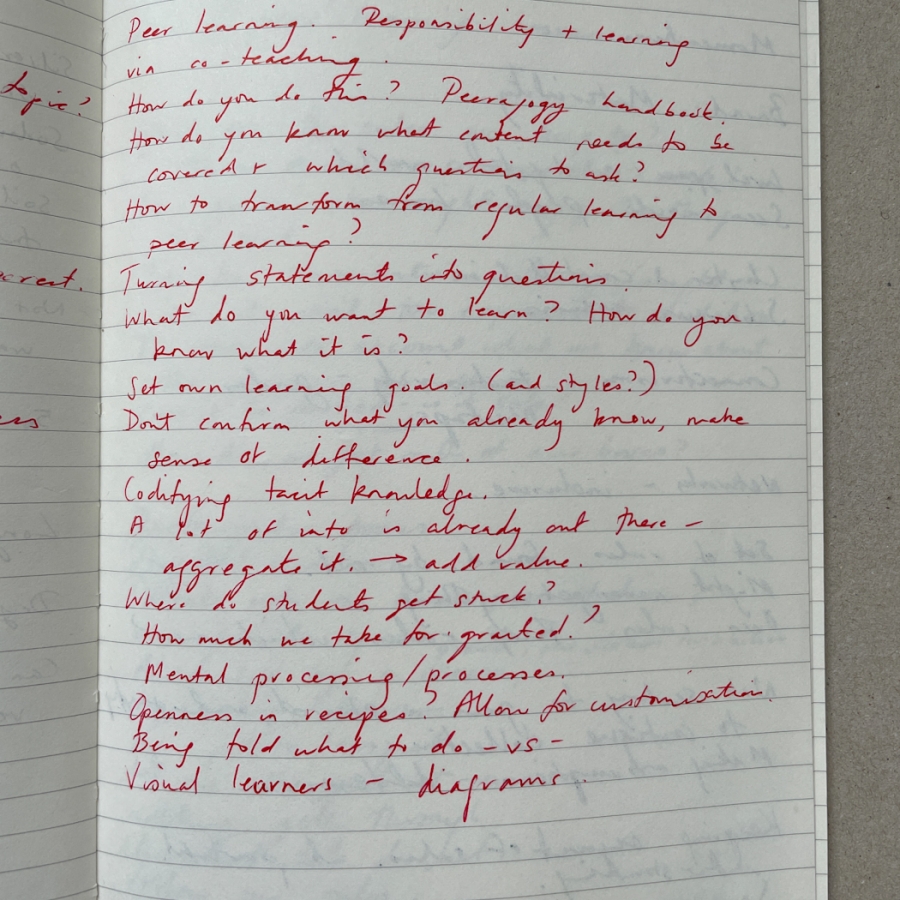 Peer learning. Responsibility + learning
via co-teaching.
topic?
How do you do this? Peeragogy handbook.
How do you know what content needs to be
covered + which questions to ask?
How to transform from regular learning to
peer learning?
Turning statements into questions.
What do you want to learn? How do you
know what it is?
Set own learning goals. (and styles?)
Don't confirm what you already know, make
sense of difference.
Codifying tacit knowledge.
A lot of info is already out there –
aggregate it. → add value.
Where do students get stuck?
How much we take for granted?
Mental processing/processes.
Openness in recipes? Allow for customisation.
Being told what to do - vs -
Visual learners – diagrams.